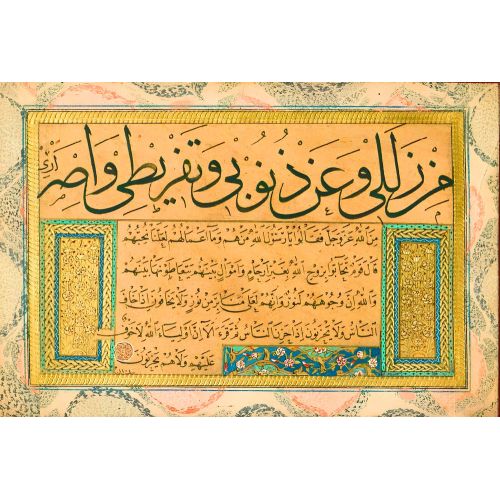 من زللي وعن ذنوبي وتفريطي واصراري
من الله عز وجل فقالوا يا رسول الله من هم وما اعمالهم لعلنا نحبهم
قال قوم تحابوا بروح الله بغير ارحام واموال بينهم يتعاطونها بينهم
والله ان وجوههم لنور وانهم لعلى منابر من نور ولا يخافون اذا خاف
الناس ولا يحزنون اذا حزن الناس ثم قرء الا ان اولياء الله لا خوف
عليهم ولا هم يحزنون